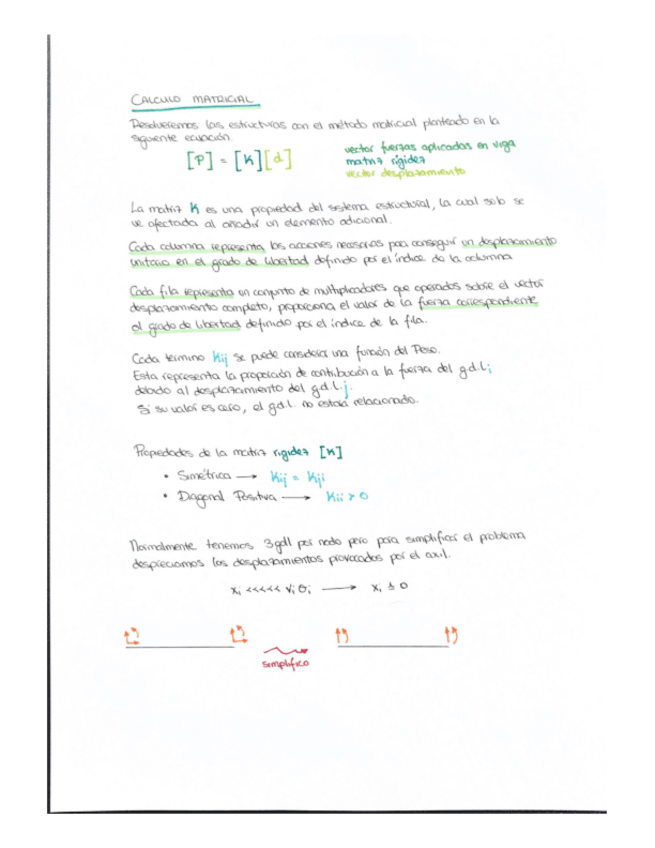 CALCULO MATRICIAL
Resolveremos las estructuras con el método matricial planteado en la
siguiente ecuación.
[P] = [K][d]
vector fuerzas aplicadas en viga
matriz rigidez
vector desplazamiento
La matriz K es una propiedad del sistema estructural, la cual solo se
ve afectada al añadir un elemento adicional.
Cada columna representa las acciones necesarias para conseguir un desplazamiento
unitario en el grado de libertad definido por el índice de la columna
Cada fila representa un conjunto de multiplicadores que operados sobre el vector
desplazamiento completo, proporciona el valor de la fuerza correspondiente
al grado de libertad definido por el índice de la fila.
Cada termino Kij se puede considerar una función del Peso.
Esta representa la proporción de contribución a la fuerza del g.d.l.i
debido al desplazamiento del g.d.l.j.
Si su valor es cero, el g.d.l. no estará relacionado.
Propiedades de la matriz rigidez [K]
• Simétrica → Kij = Kji
• Diagonal Positiva → Kii > 0
Normalmente tenemos 3gdl por nodo pero para simplificar el problema
despreciamos los desplazamientos provocados por el axil.
xi <<<<< vi θi → xi ≈ 0
simplifico